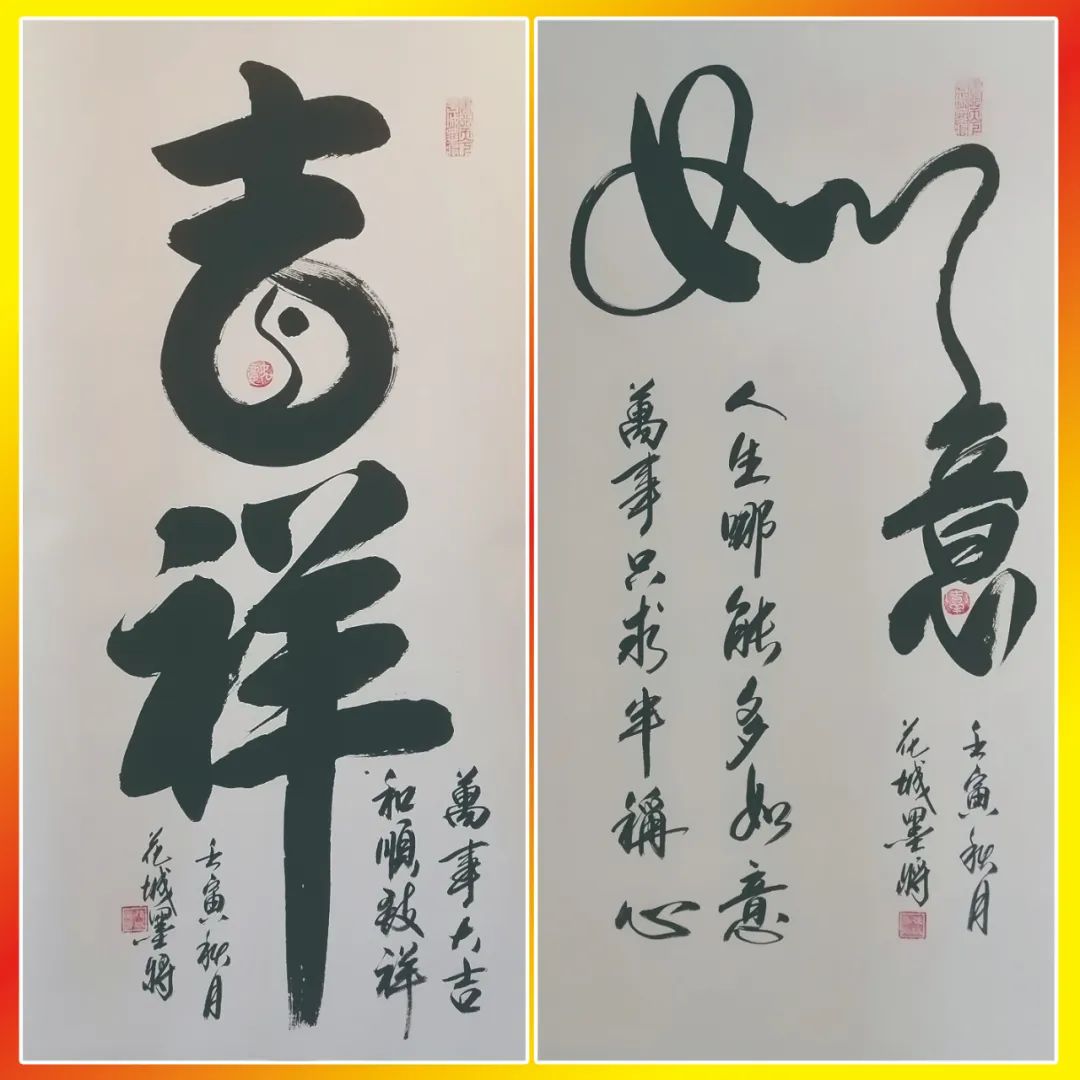 吉祥
萬事大吉
和順致祥
壬寅秋月
花城墨將
如意
人生哪能多如意
萬事只求半稱心
壬寅秋月
花城墨將